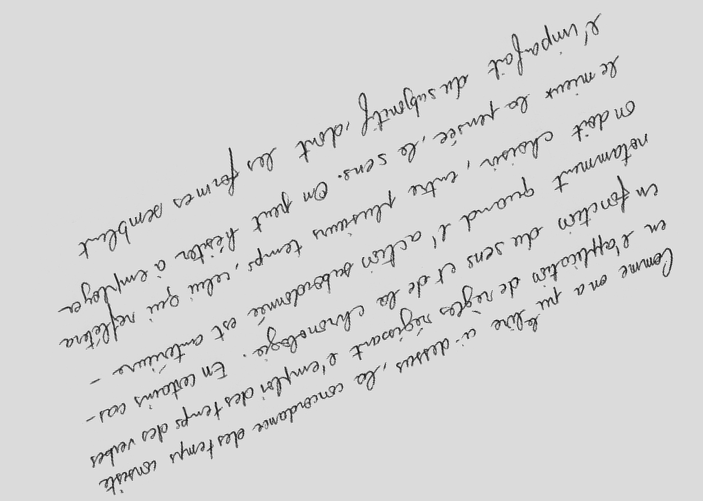 Comme on a pu le lire ci-dessus, la concordance des temps consiste
en l'application de règles régissant l'emploi des temps des verbes
en fonction du sens et de la chronologie. En certains cas -
notamment quand l'action subordonnée est antérieure -
on doit choisir, entre plusieurs temps, celui qui reflétera
le mieux la pensée, le sens. On peut hésiter à employer
l'imparfait du subjonctif, dont les formes semblent